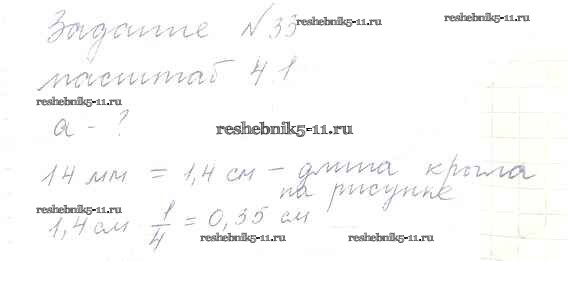 Задание №33
reshebnik5-11.ru
reshebnik5-11.ru
масштаб 4:1
reshebnik5-11.ru
a - ?
reshebnik5-11.ru
14 мм = 1,4 см - длина крыла
на рисунке
reshebnik5-11.ru
1,4 см · 1/4 = 0,35 см
reshebnik5-11.ru
reshebnik5-11.ru